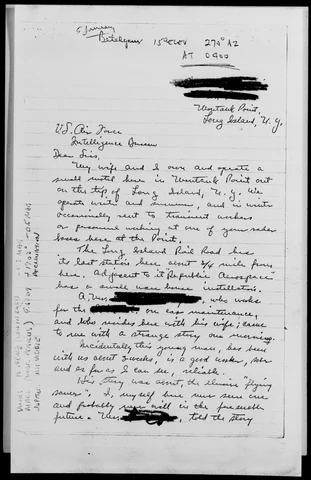 Betelgeuse 15° ELEV 270° AZ
AT 0400
Montauk Point,
Long Island, N.Y.
U.S. Air Force
Intelligence Bureau
Dear Sirs,
My wife and I own and operate a
small motel here in Montauk Point out
on the tip of Long Island, N.Y. We
operate winter and summer, and in winter
occasionally rent to transient workers
or personnel working at one of your radar
bases here at the Point.
The Long Island Rail Road has
its last station here about 3/4 mile from
here. Adjacent to it Republic Aerospace
has a small warehouse installation.
A Mr. who works
for the on base maintenance,
and who resides here with his wife, came
to me with a strange story one morning.
Incidentally this young man, has been
with us about 3 weeks, is a good worker, sober
and as far as I can see, reliable.
His story was about, the elusive "flying
saucer". I, myself have never seen one
and probably never will in the foreseeable
future. Mr. told the story